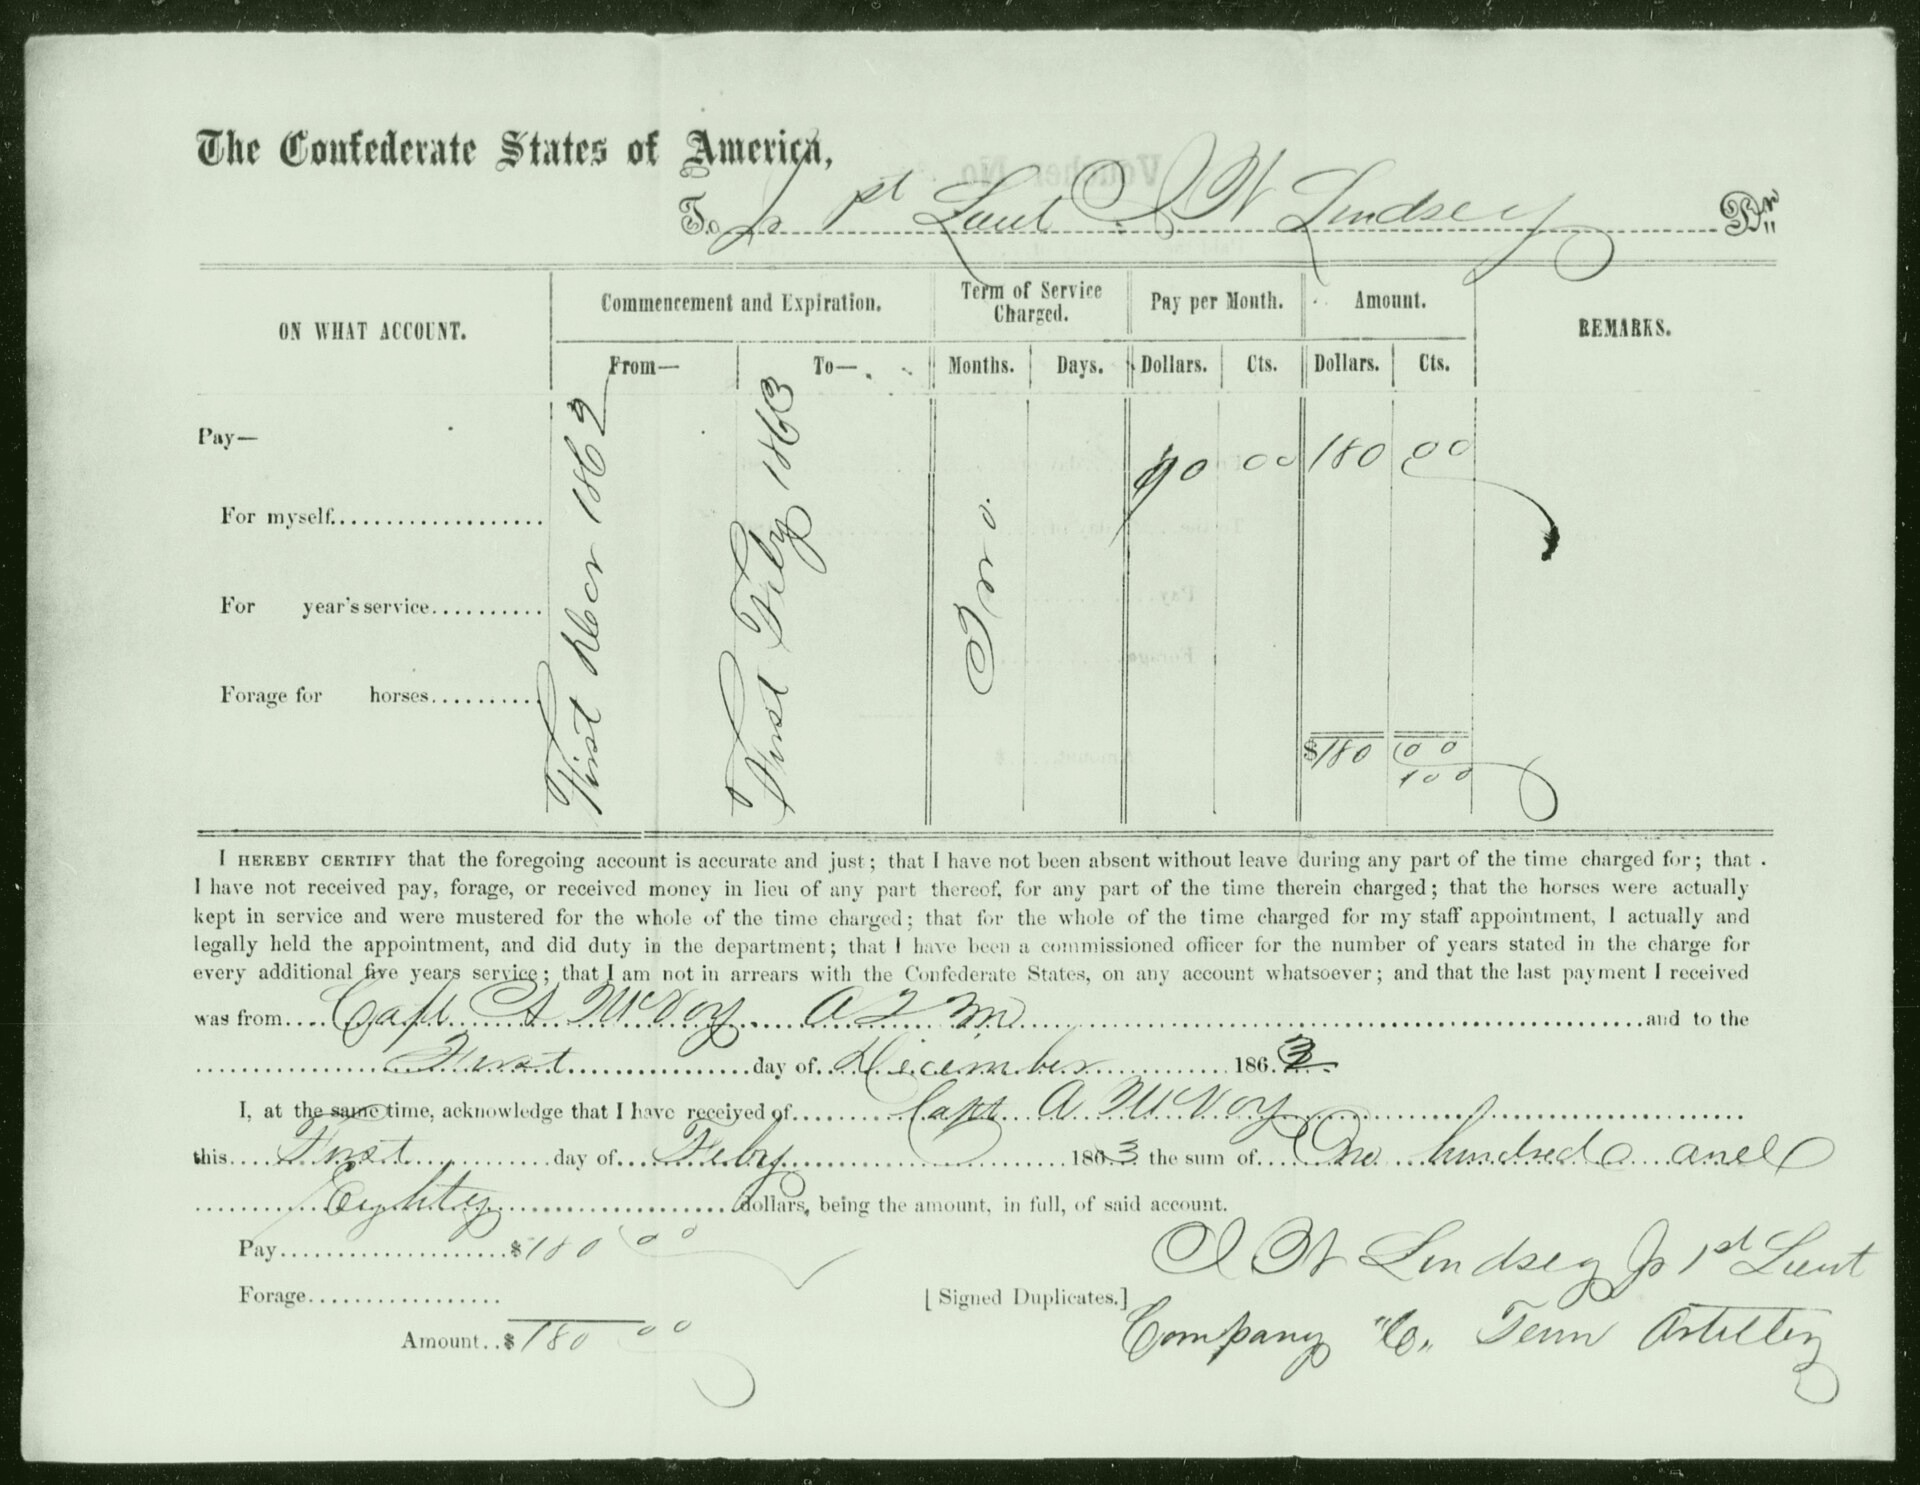 The Confederate States of America,
To Jr 1st Lieut J W Lindsey Dr.
ON WHAT ACCOUNT.
Commencement and Expiration.
Term of Service Charged.
Pay per Month.
Amount.
REMARKS.
From—
To—
Months.
Days.
Dollars.
Cts.
Dollars.
Cts.
Pay—
For myself
For year's service
Forage for horses
First Decr 1862
First Feby 1863
Two
90 00 180 00
$180 00
100
I HEREBY CERTIFY that the foregoing account is accurate and just; that I have not been absent without leave during any part of the time charged for; that
I have not received pay, forage, or received money in lieu of any part thereof, for any part of the time therein charged; that the horses were actually
kept in service and were mustered for the whole of the time charged; that for the whole of the time charged for my staff appointment, I actually and
legally held the appointment, and did duty in the department; that I have been a commissioned officer for the number of years stated in the charge for
every additional five years service; that I am not in arrears with the Confederate States, on any account whatsoever; and that the last payment I received
was from Capt A McVoy A Q M and to the
First day of December 1862
I, at the same time, acknowledge that I have received of Capt A McVoy
this First day of Feby 1863 the sum of One hundred and
Eighty dollars, being the amount, in full, of said account.
Pay $180 00
Forage
Amount $180 00
[Signed Duplicates.]
J W Lindsey Jr 1st Lieut
Company "C" Tenn Artillery